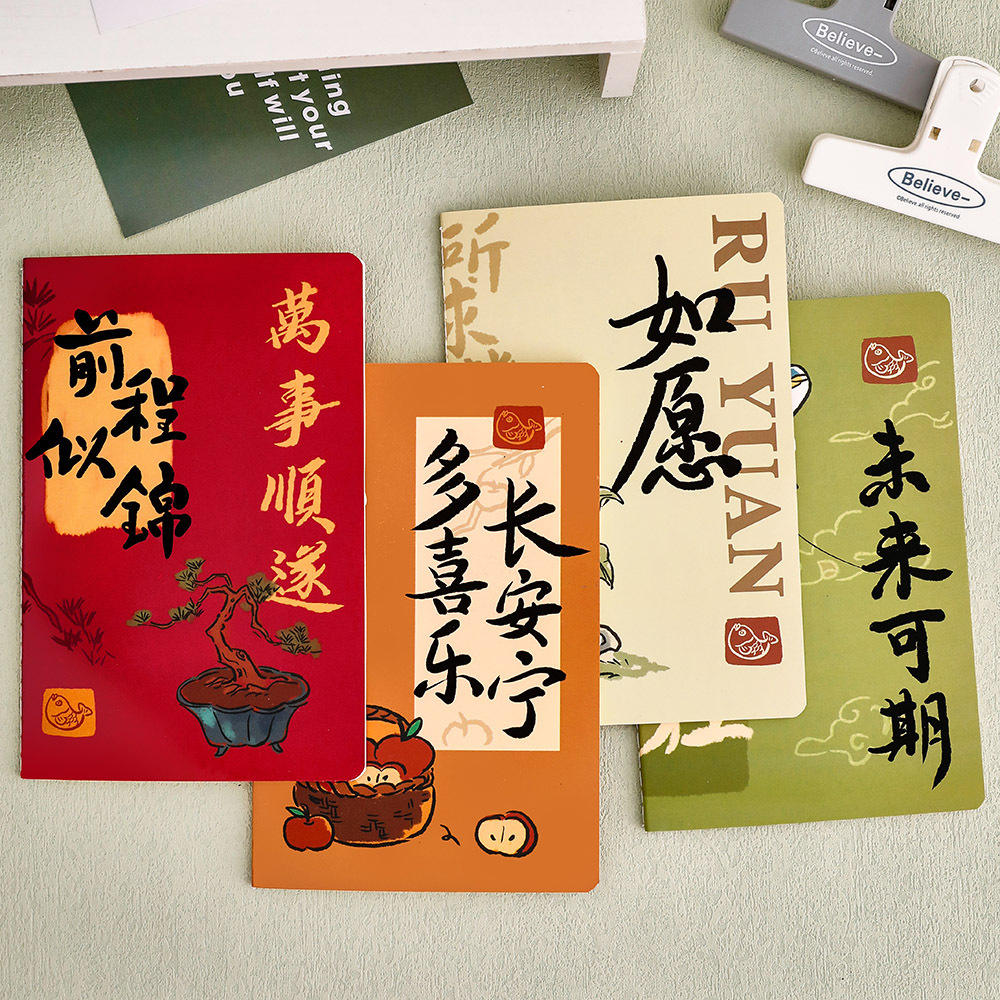 ing
t your
lf will
ou
Believe-
©Believe all rights reserved.
Believe-
©Believe all rights reserved.
前程
似锦
萬事順遂
长安宁
多喜乐
所求
RU YUAN
如愿
未来可期